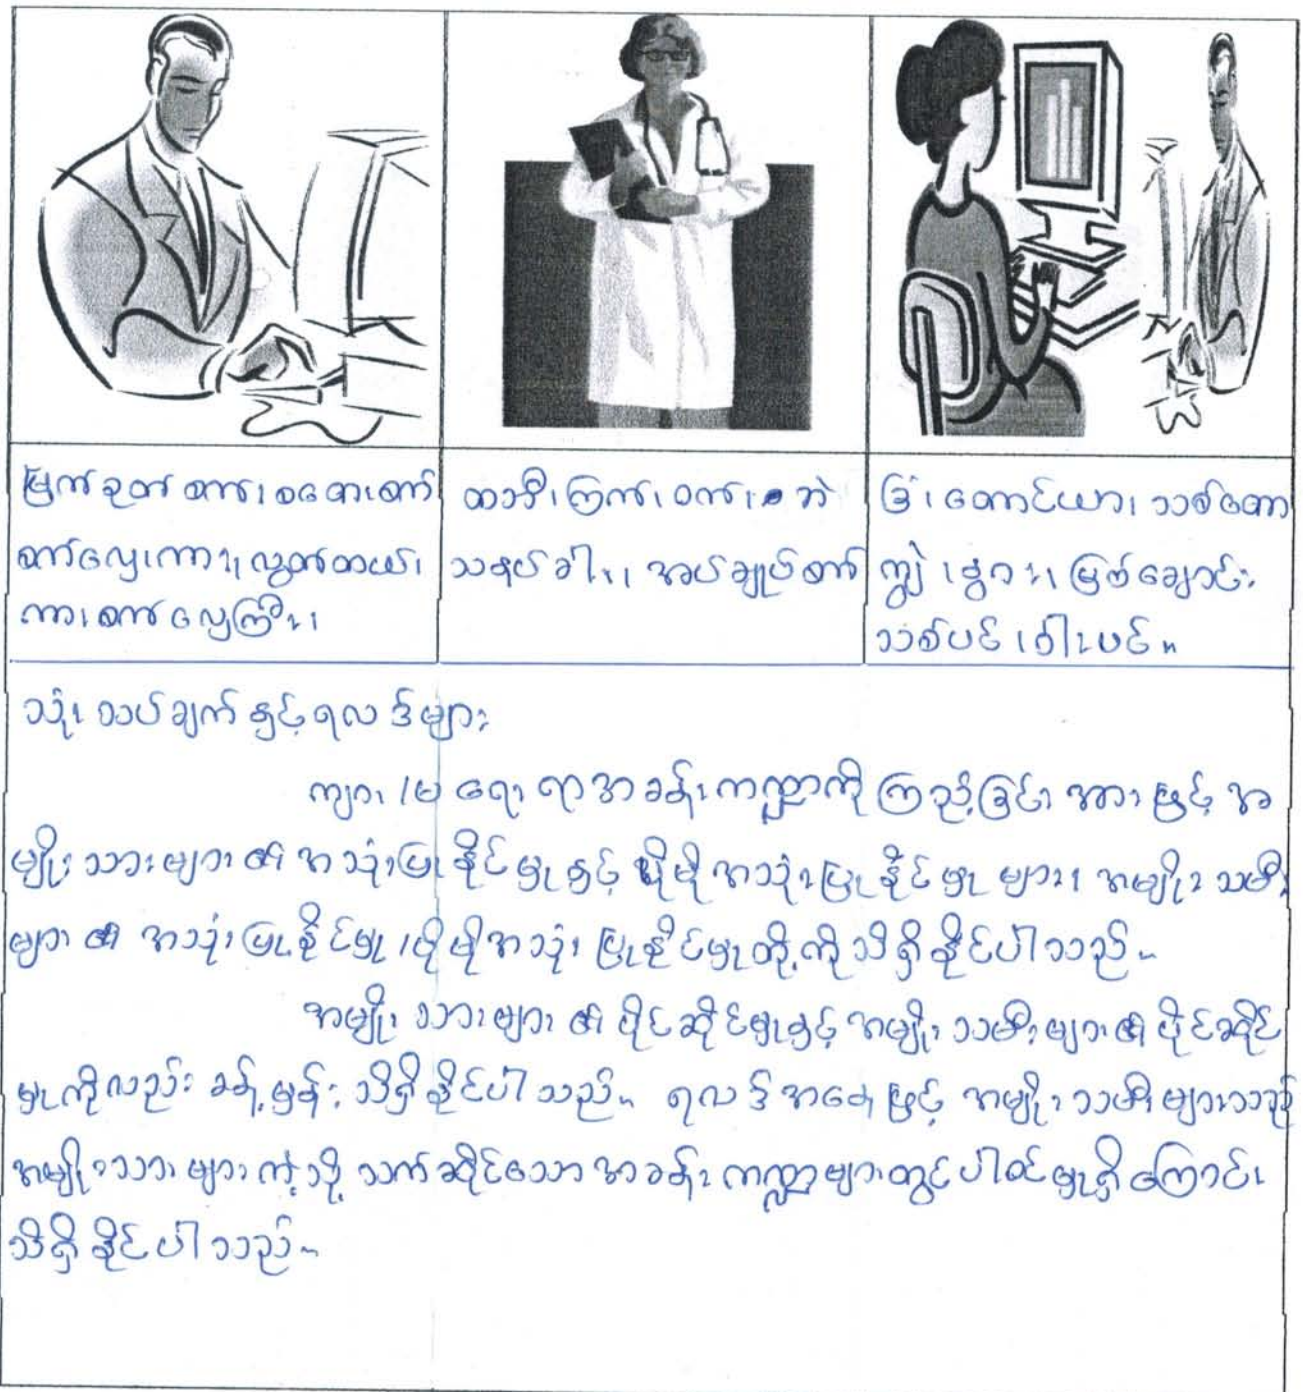 မြက်ခုတ်စက်၊ စတေးတော်
စက်လှေ၊ ကား၊ လွတ်တယ်၊
ကား၊ စက်လှေကြီး၊
ထဘီ၊ ကြက်၊ ဝက်၊ ဘဲ
သနပ်ခါး၊ အပ်ချုပ်စက်
ခြံ၊ တောင်ယာ၊ သစ်တော
ကျွဲ၊ နွား၊ မြစ်ချောင်း
သစ်ပင်၊ ဝါးပင်။
သုံးသပ်ချက်နှင့်ရလဒ်များ
ကျား/မ ရေးရာအခန်းကဏ္ဍကို ကြည့်ခြင်းအားဖြင့် အ
မျိုးသားများ၏ အသုံးပြုနိုင်မှုနှင့် ပိုမိုအသုံးပြုနိုင်မှုများ၊ အမျိုးသမီး
များ၏ အသုံးပြုနိုင်မှု/ပိုမိုအသုံးပြုနိုင်မှုတို့ကို သိရှိနိုင်ပါသည်။
အမျိုးသားများ၏ ပိုင်ဆိုင်မှုနှင့် အမျိုးသမီးများ၏ ပိုင်ဆိုင်
မှုကိုလည်း ခန့်မှန်းသိရှိနိုင်ပါသည်။ ရလဒ်အနေဖြင့် အမျိုးသမီးများသည်
အမျိုးသားများကဲ့သို့ သက်ဆိုင်သော အခန်းကဏ္ဍများတွင်ပါဝင်မှုရှိကြောင်း
သိရှိနိုင်ပါသည်။